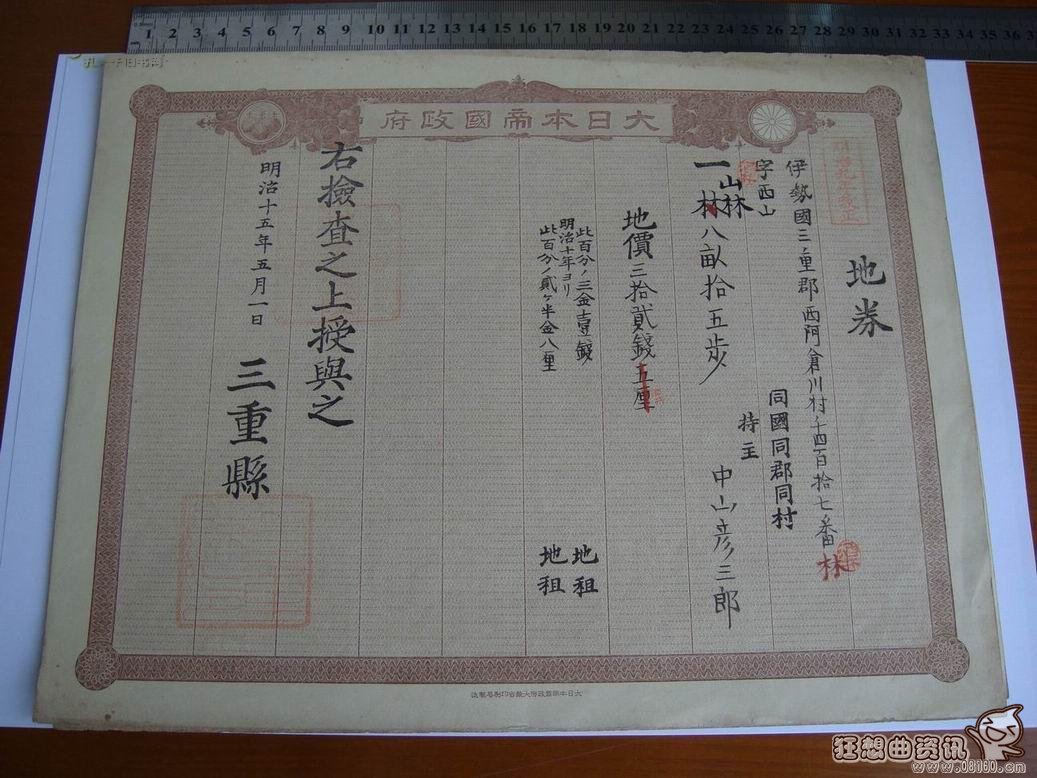 大日本帝國政府
明治九年改正
地券
伊勢國三重郡西阿倉川村千四百拾七番
林
字西山
同國同郡同村
持主 中山彦三郎
山林
一 林八畝拾五歩
地價三拾貳錢五厘
此百分ノ三金壹錢 地租
明治十年ヨリ
此百分ノ貳ケ半金八厘 地租
右撿査之上授與之
明治十五年五月一日 三重縣
大日本帝國政府大藏省印刷局製造
1 2 3 4 5 6 7 8 9 10 11 12 13 14 15 16 17 18 19 20 21 22 23 24 25 26 27 28 29 30 31 32 33 34 35 36 37
狂想曲资讯
www.08160.cn